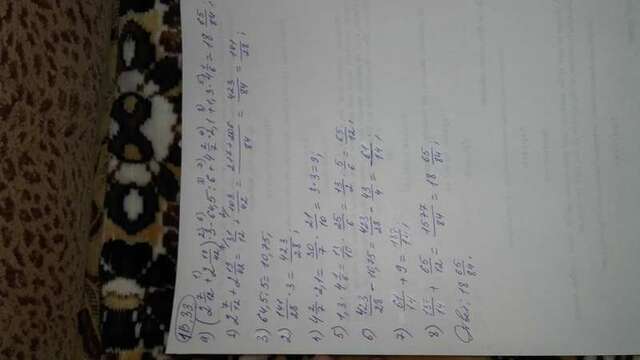 1В,33
а) (2 7/12 + 2 19/42) · 3 - 64,5 : 6 + 4 2/7 · 2,1 + 1,3 · 4 1/6 = 18 65/84;
1) 2 7/12 + 2 19/42 = 31/12 + 103/42 = 217+206/84 = 423/84 = 141/28;
3) 64,5 : 5 = 10,75;
2) 141/28 · 3 = 423/28;
4) 4 2/7 · 2,1 = 30/7 · 21/10 = 3·3 = 9;
5) 1,3 · 4 1/6 = 13/10 · 25/6 = 13/2 · 5/6 = 65/12;
6) 423/28 - 10,75 = 423/28 - 43/4 = 61/14;
7) 61/14 + 9 = 187/14;
8) 187/14 + 65/12 = 1577/84 = 18 65/84;
Ответ: 18 65/84.